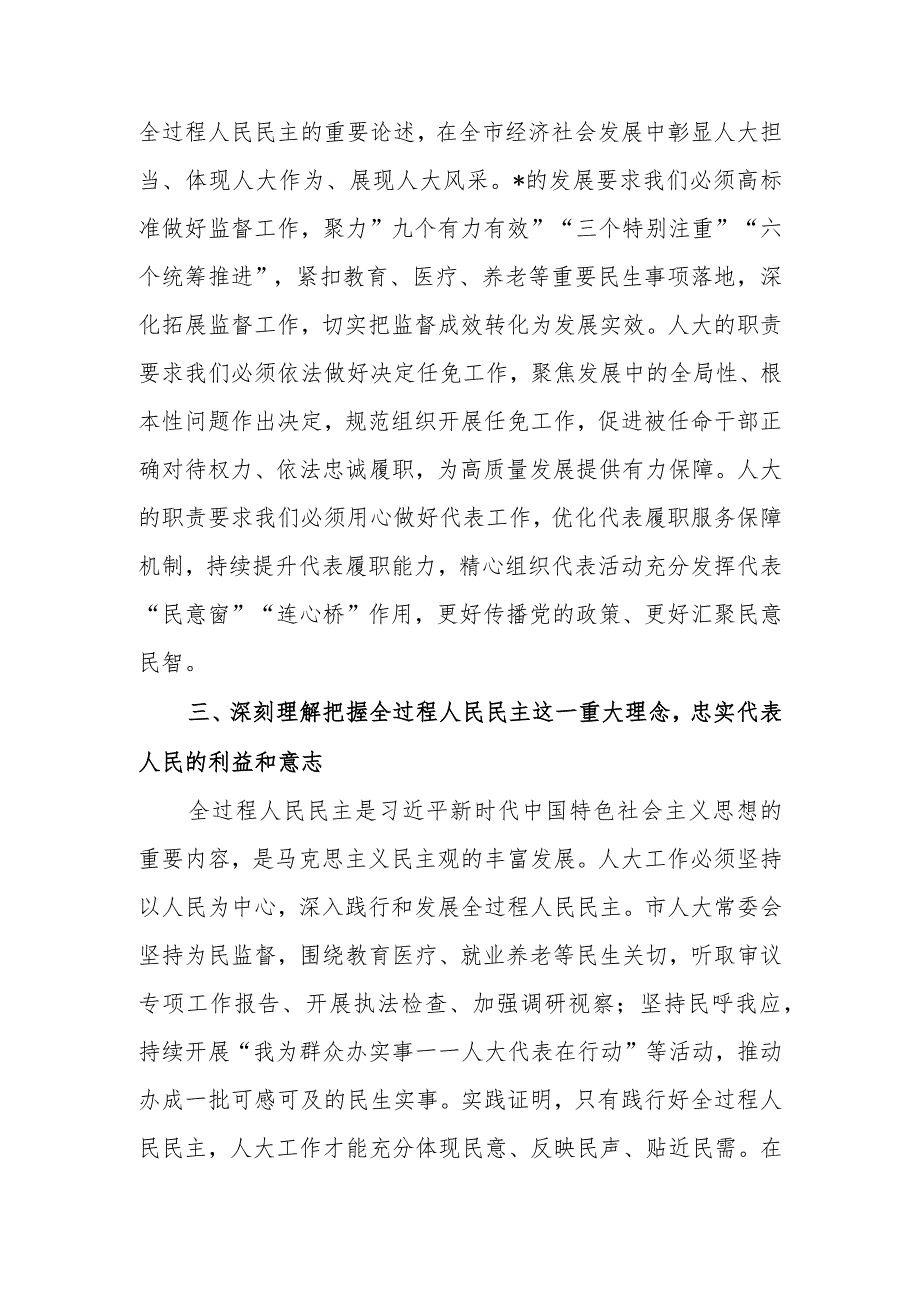 全过程人民民主的重要论述，在全市经济社会发展中彰显人大担
当、体现人大作为、展现人大风采。*的发展要求我们必须高标
准做好监督工作，聚力”九个有力有效”“三个特别注重”“六
个统筹推进”，紧扣教育、医疗、养老等重要民生事项落地，深
化拓展监督工作，切实把监督成效转化为发展实效。人大的职责
要求我们必须依法做好决定任免工作，聚焦发展中的全局性、根
本性问题作出决定，规范组织开展任免工作，促进被任命干部正
确对待权力、依法忠诚履职，为高质量发展提供有力保障。人大
的职责要求我们必须用心做好代表工作，优化代表履职服务保障
机制，持续提升代表履职能力，精心组织代表活动充分发挥代表
“民意窗”“连心桥”作用，更好传播党的政策、更好汇聚民意
民智。
三、深刻理解把握全过程人民民主这一重大理念，忠实代表
人民的利益和意志
全过程人民民主是习近平新时代中国特色社会主义思想的
重要内容，是马克思主义民主观的丰富发展。人大工作必须坚持
以人民为中心，深入践行和发展全过程人民民主。市人大常委会
坚持为民监督，围绕教育医疗、就业养老等民生关切，听取审议
专项工作报告、开展执法检查、加强调研视察；坚持民呼我应，
持续开展“我为群众办实事一一人大代表在行动”等活动，推动
办成一批可感可及的民生实事。实践证明，只有践行好全过程人
民民主，人大工作才能充分体现民意、反映民声、贴近民需。在